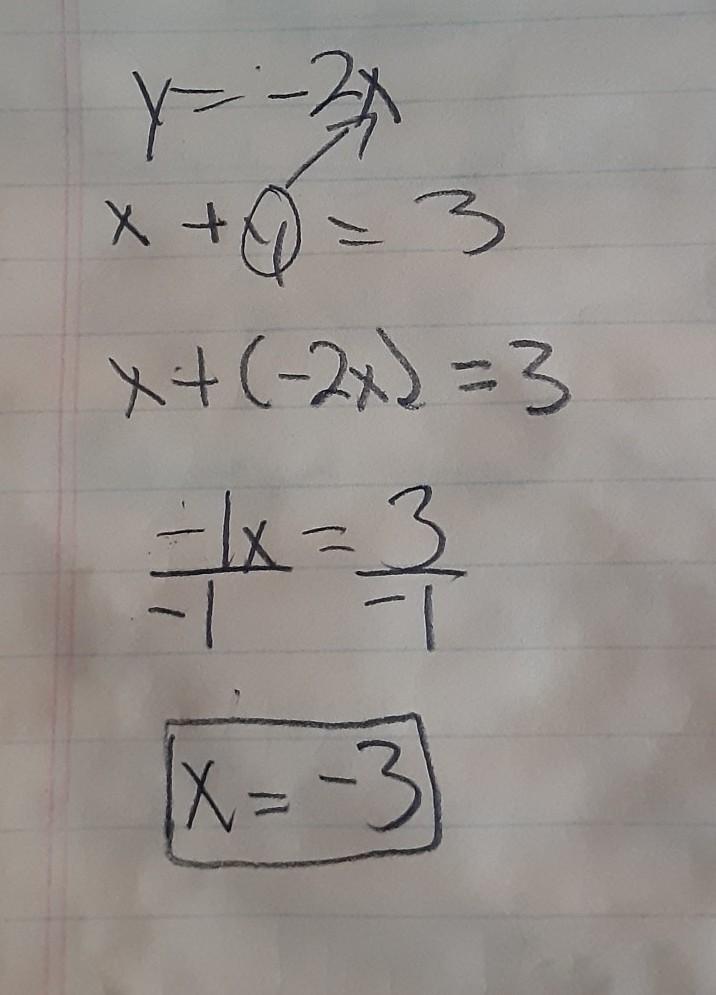 y = -2x
x + y = 3
x + (-2x) = 3
-1x = 3
-1 -1
x = -3